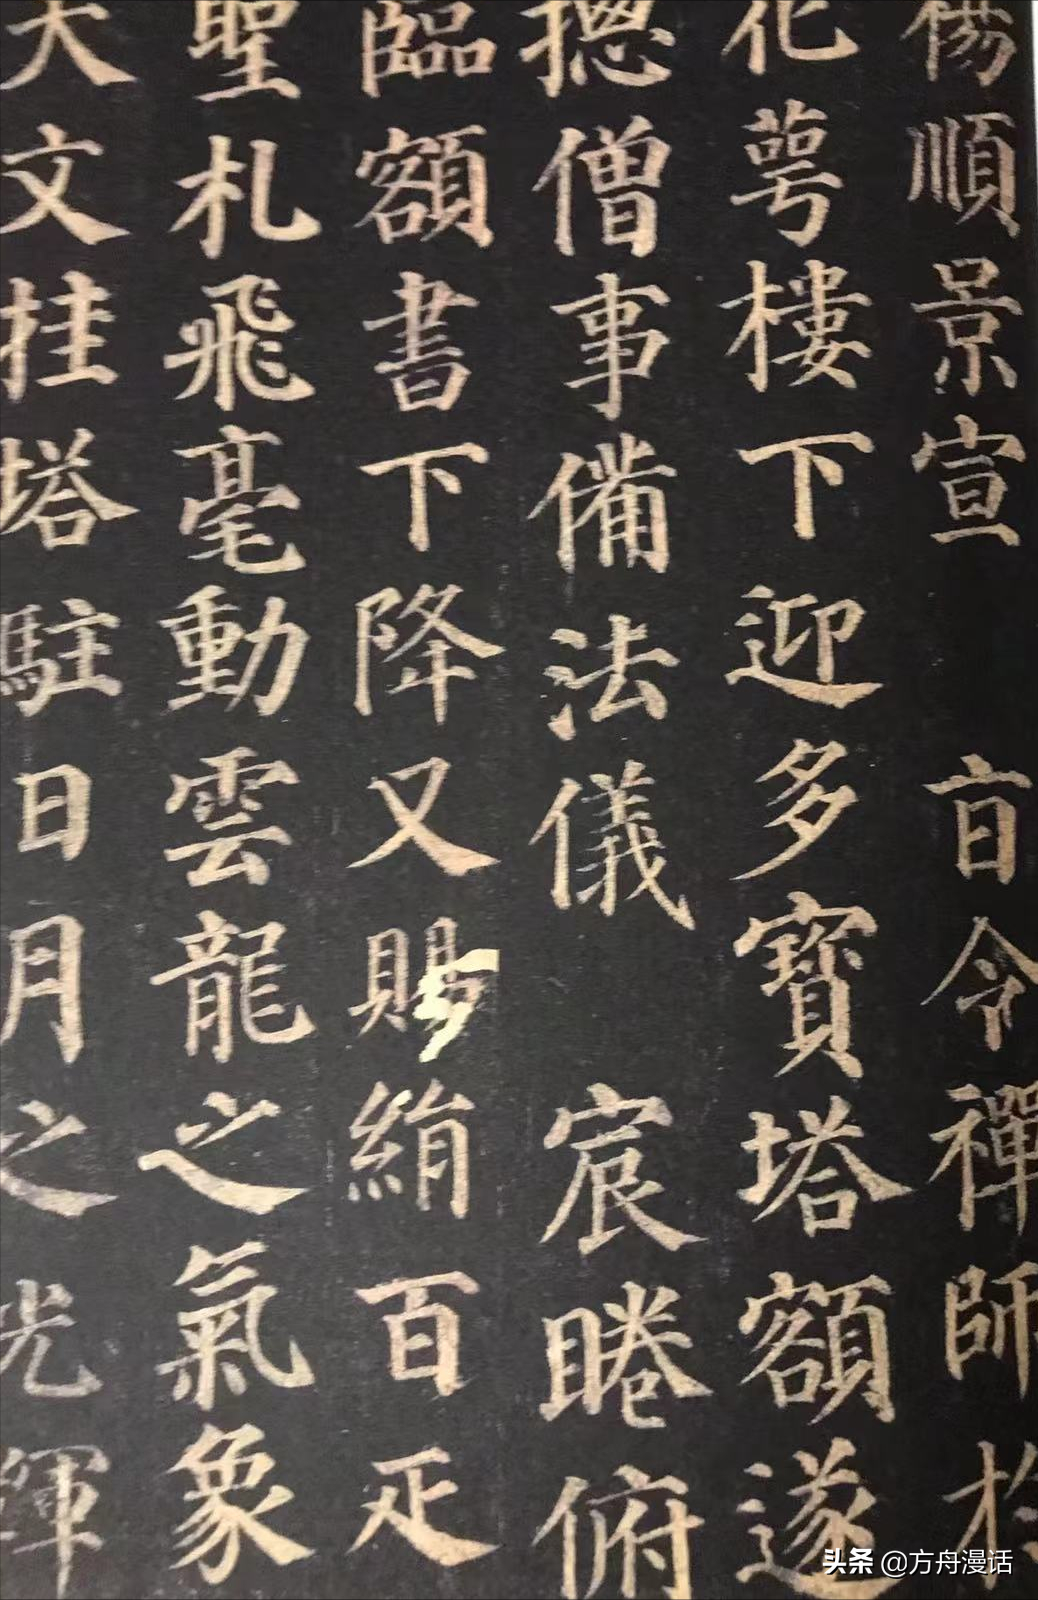 楊順景宣 㫖令禪師於
花萼樓下迎多寶塔額遂
摠僧事備法儀 宸睠俯
臨額書下降又賜絹百疋
聖札飛毫動雲龍之氣象
天文挂塔駐日月之光輝
头条 @方舟漫话